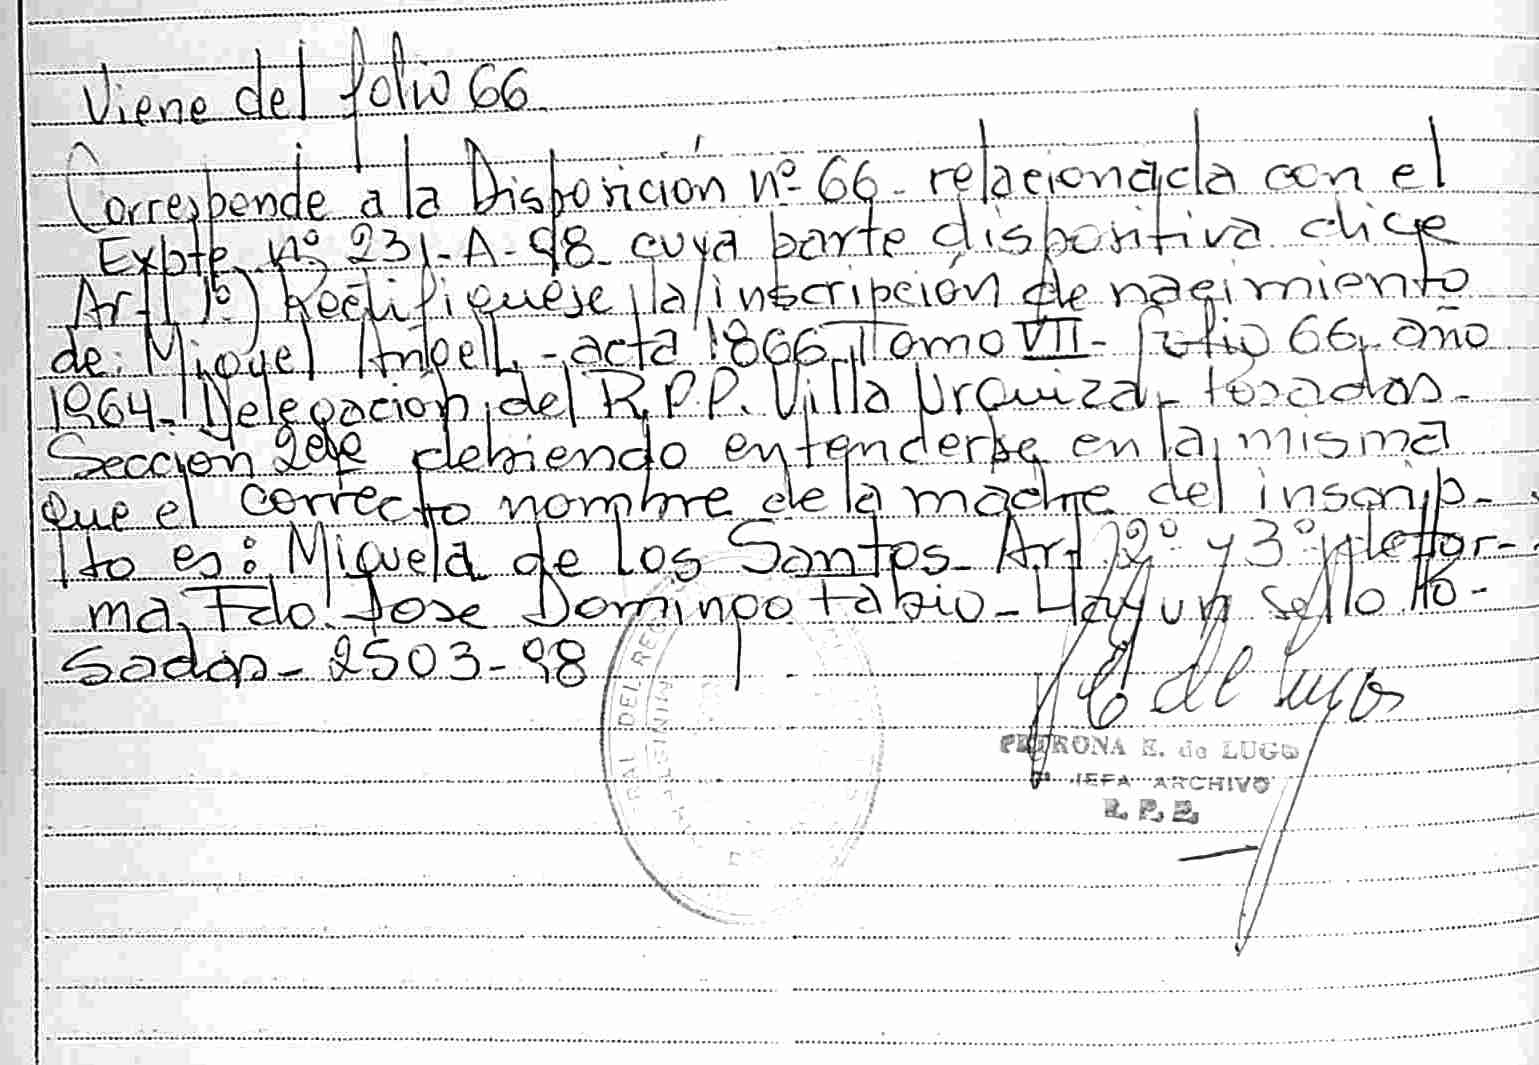 Viene del folio 66.
Corresponde a la Disposición nº 66 - relacionada con el
Expte. nº 231-A-98 - cuya parte dispositiva dice
Art 1º) Rectifiquese la inscripción de nacimiento
de: Miguel Angel - acta 1866 Tomo VII - folio 66, año
1964 - Delegación del R.P.P. Villa Urquiza - Posadas -
Sección 2da debiendo entenderse en la misma
que el correcto nombre de la madre del inscrip-
to es: Miguela de los Santos - Art 2º y 3º de for-
ma, Fdo. Jose Domingo Fabio - Hay un sello Po-
sadas - 2503-98
PETRONA E. de LUGO
JEFA ARCHIVO
R. P. P.
RAL DEL REG
MINIST